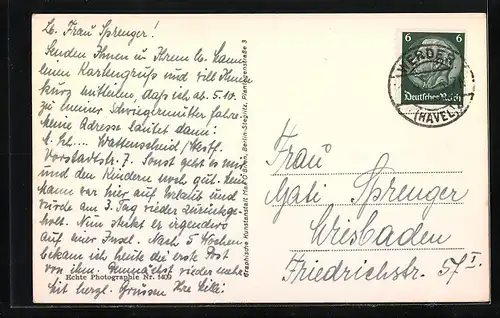 Lb. Frau Sprenger!
Senden Ihnen u. Ihrem lb. Mann
einen Kartengruß und will Ihnen
kurz mitteilen, daß ich ab. 5.10.
zu meiner Schwiegermutter fahre.
Meine Adresse lautet dann:
Wattenscheid /Westf.
Vorstadtstr. 7. Sonst geht es mir
und den Kindern noch gut. Mein
Mann war hier auf Urlaub und
würde am 3. Tag wieder zurückge-
holt. Nun steckt er irgendwo
auf einer Insel. Nach 5 Wochen
bekam ich heute die erste Post
von ihm. Demnächst wieder mehr
Mit herzl. Grüssen Ihre
Echte Photographie Nr. 1409
Graphische Kunstanstalt Max O'Brien, Berlin-Steglitz,
6 6
Deutsches Reich
WERDER
(HAVEL)
Frau
Gabi Sprenger
Wiesbaden
Friedrichstr. 57 I.